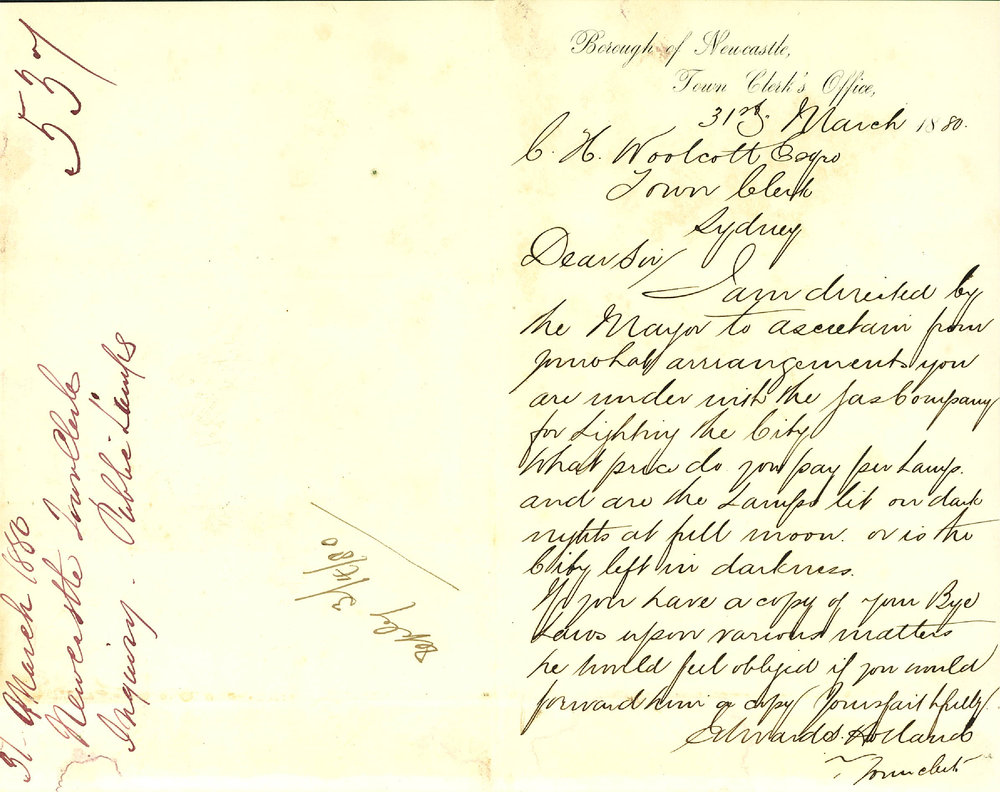 537
31 March 1880
Newcastle Town Clerk
Inquiry. Public Lamps
Reply 3/4/80
Borough of Newcastle,
Town Clerk's Office,
31st March 1880.
C. H. Woolcott Esqre
Town Clerk
Sydney
Dear Sir
I am directed by
the Mayor to ascertain from
you what arrangements you
are under with the Gas Company
for Lighting the City
What price do you pay per Lamp.
and are the Lamps lit on dark
nights at full moon. or is the
City left in darkness.
If you have a copy of your Bye
Laws upon various matters
he would feel obliged if you would
forward him a copy Yours faithfully
Edward S. Holland
Town clerk